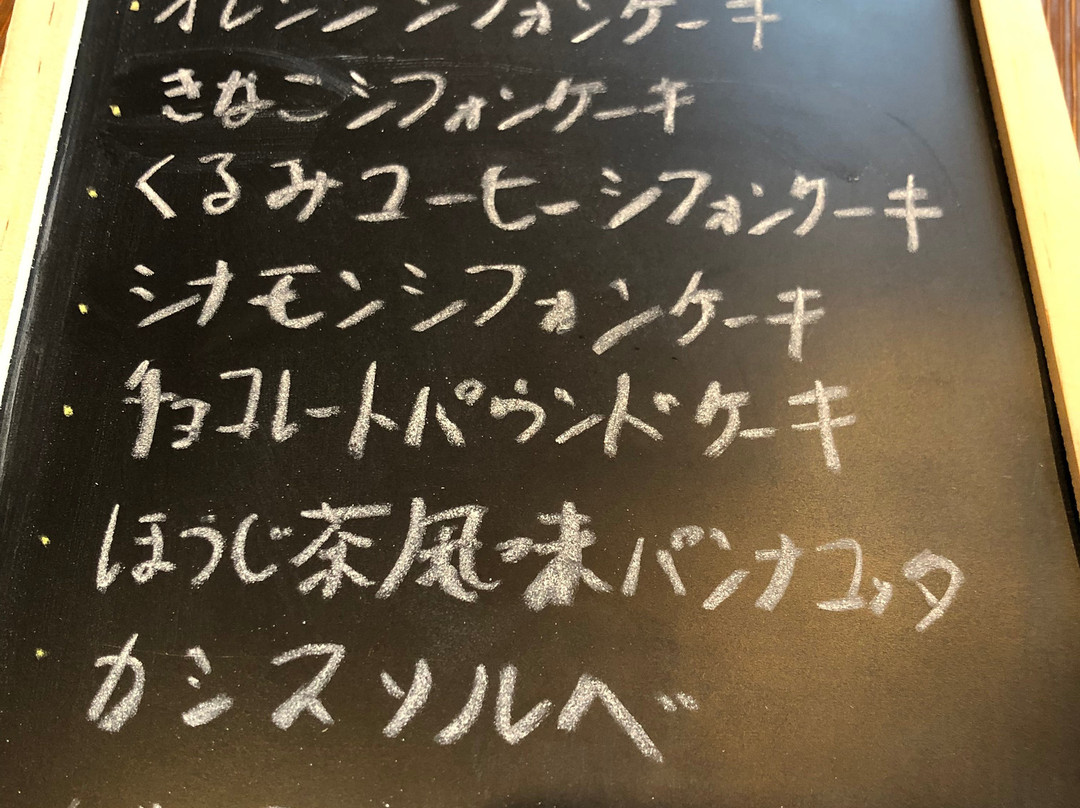 オレンジシフォンケーキ
きなこシフォンケーキ
くるみコーヒーシフォンケーキ
シナモンシフォンケーキ
チョコレートパウンドケーキ
ほうじ茶風味パンナコッタ
カシスソルベ